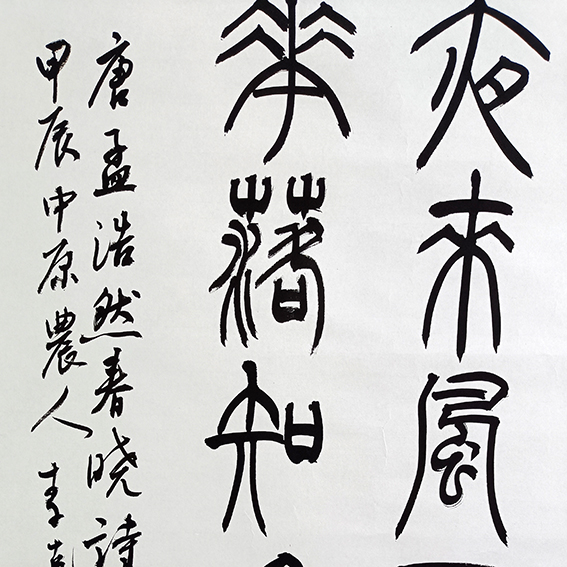 夜来風
華落知
唐孟浩然春晓詩
甲辰中原農人李